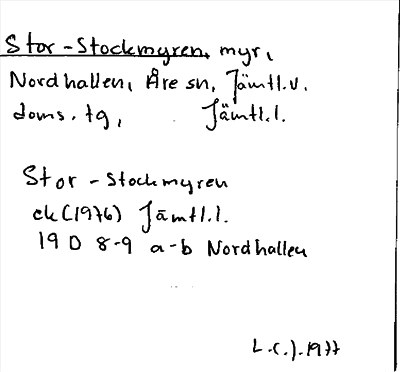 Stor-Stockmyren, myr,
Nordhallen, Åre sn, Jämtl.v.
doms. tg, Jämtl.l.
Stor-Stockmyren
ek (1976) Jämtl.l.
19 D 8-9 a-b Nordhallen
L.C.J. 1977